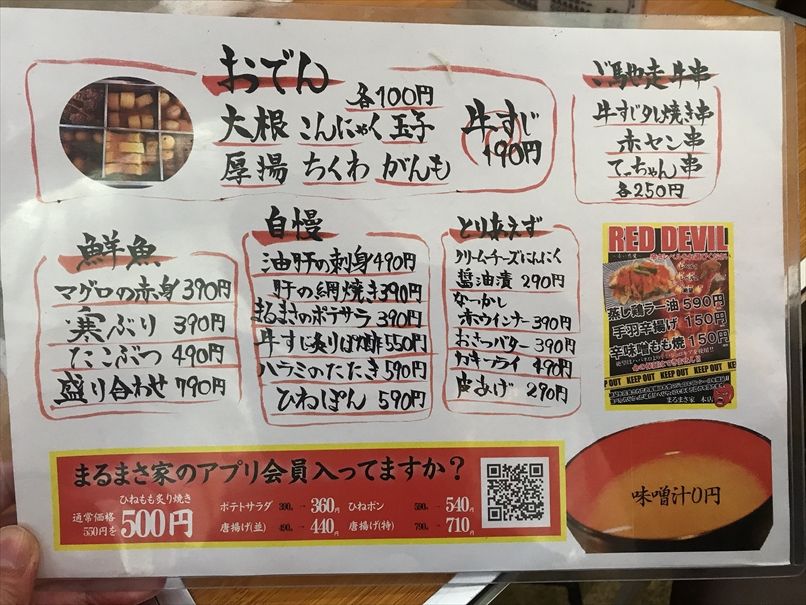 おでん
各100円
大根 こんにゃく 玉子
厚揚 ちくわ がんも
牛すじ
190円
ご馳走牛串
牛すじタレ焼き串
赤セン串
てっちゃん串
各250円
鮮魚
マグロの赤身 390円
寒ぶり 390円
たこぶつ 490円
盛り合わせ 790円
自慢
油肝の刺身 490円
肝の網焼き 390円
まるまさのポテサラ 390円
牛すじ炙りぽん酢 550円
ハラミのたたき 590円
ひねぽん 590円
とりあえず
クリームチーズにんにく
醤油漬 290円
なつかし
赤ウインナー 390円
おさつバター 390円
カキフライ 490円
皮あげ 290円
RED DEVIL
蒸し鶏ラー油 590円
手羽辛揚げ 150円
辛味噌もも焼 150円
KEEP OUT KEEP OUT KEEP OUT
まるまさ家 本店
まるまさ家のアプリ会員入ってますか？
ひねもも炙り焼き
通常価格
550円を
500円
ポテトサラダ 390円→360円 ひねポン 590円→540円
唐揚げ(並) 490円→440円 唐揚げ(特) 790円→710円
味噌汁0円